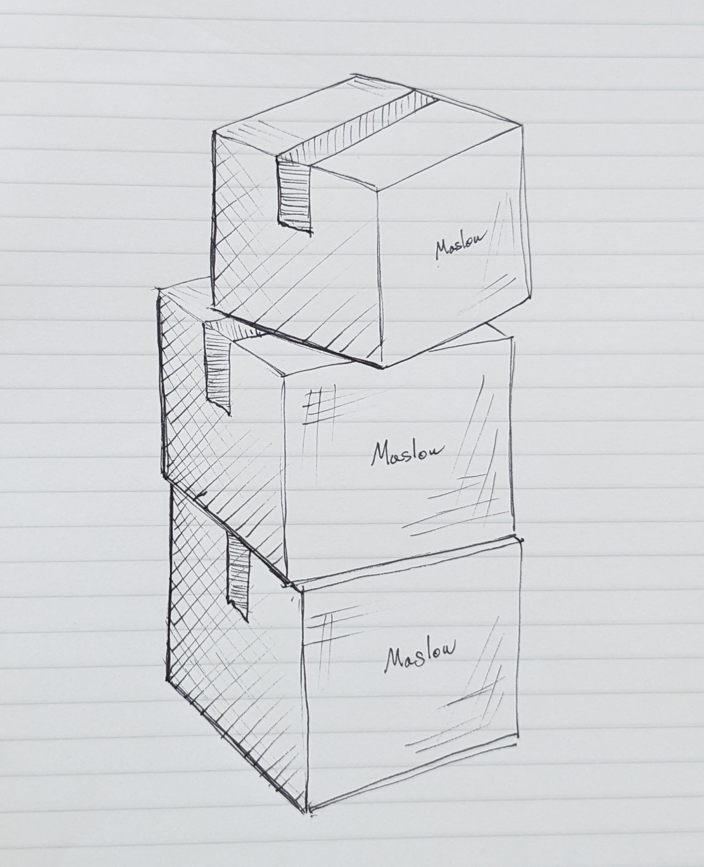 Maslow
Maslow
Maslow